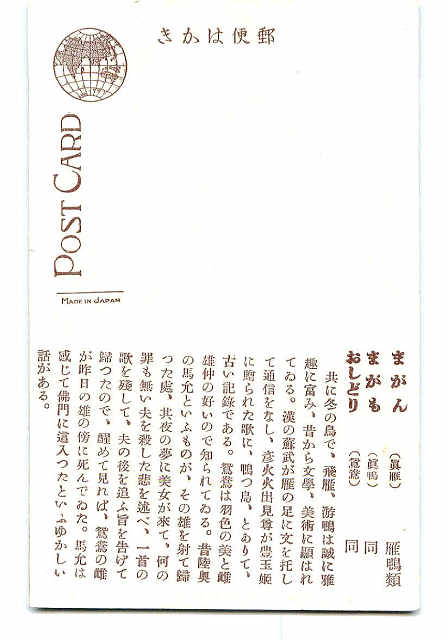 きかは便郵
POST CARD
MADE IN JAPAN
まがん（眞雁）　雁鴨類
まがも（眞鴨）　同
おしどり（鴛鴦）　同
共に冬の鳥で、飛雁、游鴨は誠に雅
趣に富み、昔から文學、美術に顯はれ
てゐる。漢の蘇武が雁の足に文を托し
て通信をなし、彦火火出見尊が豊玉姬
に贈られた歌に、鴨つ島、とありて、
古い記錄である。鴛鴦は羽色の美と雌
雄仲の好いので知られてゐる。昔陸奥
の馬允といふものが、その雄を射て歸
つた處、其夜の夢に美女が來て、何の
罪も無い夫を殺した悲を述べ、一首の
歌を殘して、夫の後を追ふ旨を告げて
歸つたので、醒めて見れば、鴛鴦の雌
が昨日の雄の傍に死んでゐた。馬允は
感じて佛門に這入つたといふゆかしい
話がある。